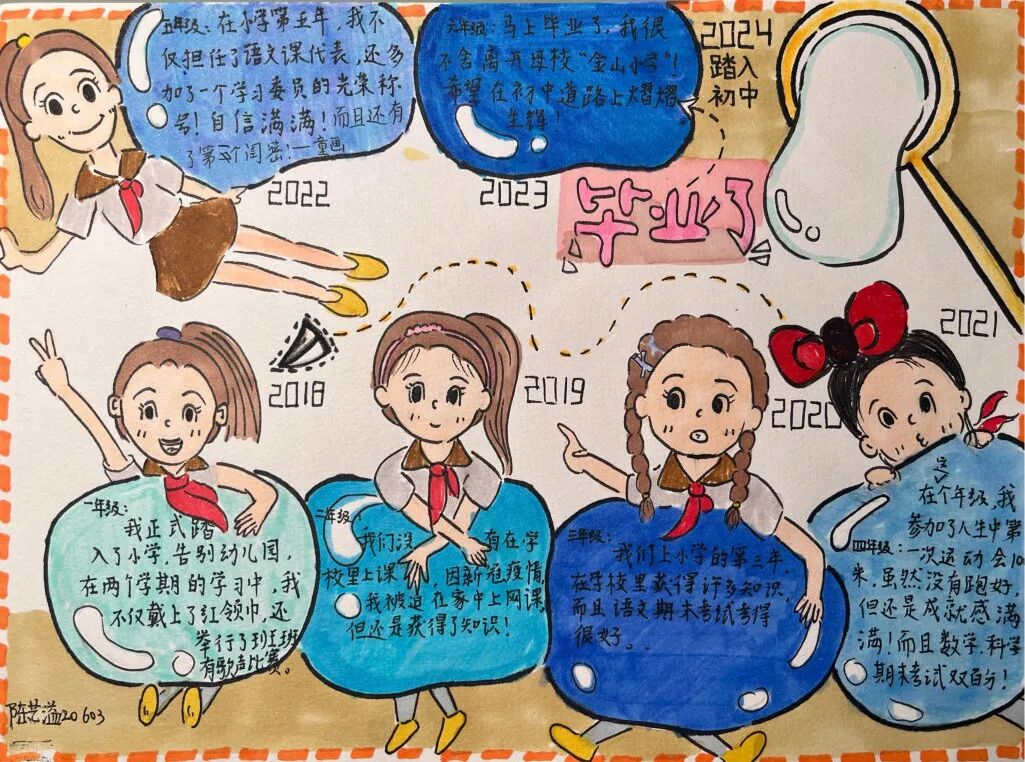 五年级：在小学第五年，我不
仅担任了语文课代表，还多
加了一个学习委员的光荣称
号！自信满满！而且还有
了第一个闺密！——童画
六年级：马上毕业了，我很
不舍离开母校“金山小学”！
希望在初中道路上熠熠
生辉！
2024
踏入
初中
2022
2023
毕业了
2018
2019
2020
2021
一年级：
我正式踏
入了小学，告别幼儿园，
在两个学期的学习中，我
不仅戴上了红领巾，还
举行了班班
有歌声比赛。
二年级：
我们没有在学
校里上课，因新冠疫情，
我被迫在家中上网课，
但还是获得了知识！
三年级：
我们上小学的第三年，
在学校里获得许多知识，
而且语文期末考试考得
很好。
四年级：
在这个年级，我
参加了人生中第
一次运动会100
米，虽然没有跑好，
但还是成就感满
满！而且数学、科学
期末考试双百分！
陈艺溢20603